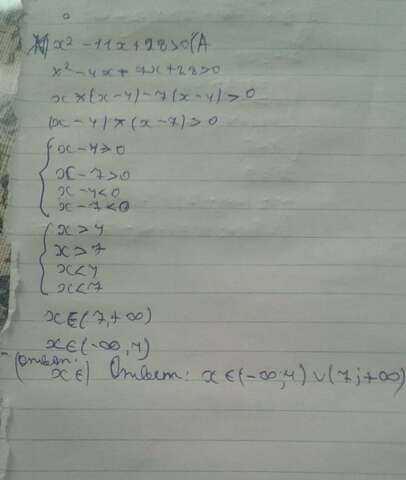 x² - 11x + 28 > 0 (A
x² - 4x + 7x + 28 > 0
x * (x - 4) - 7(x - 4) > 0
(x - 4) * (x - 7) > 0
x - 4 > 0
x - 7 > 0
x - 4 < 0
x - 7 < 0
x > 4
x > 7
x < 4
x < 7
x ∈ (7, + ∞)
x ∈ (-∞, 4)
(Ответ:
x ∈) Ответ: x ∈ (-∞; 4) ∪ (7; +∞)